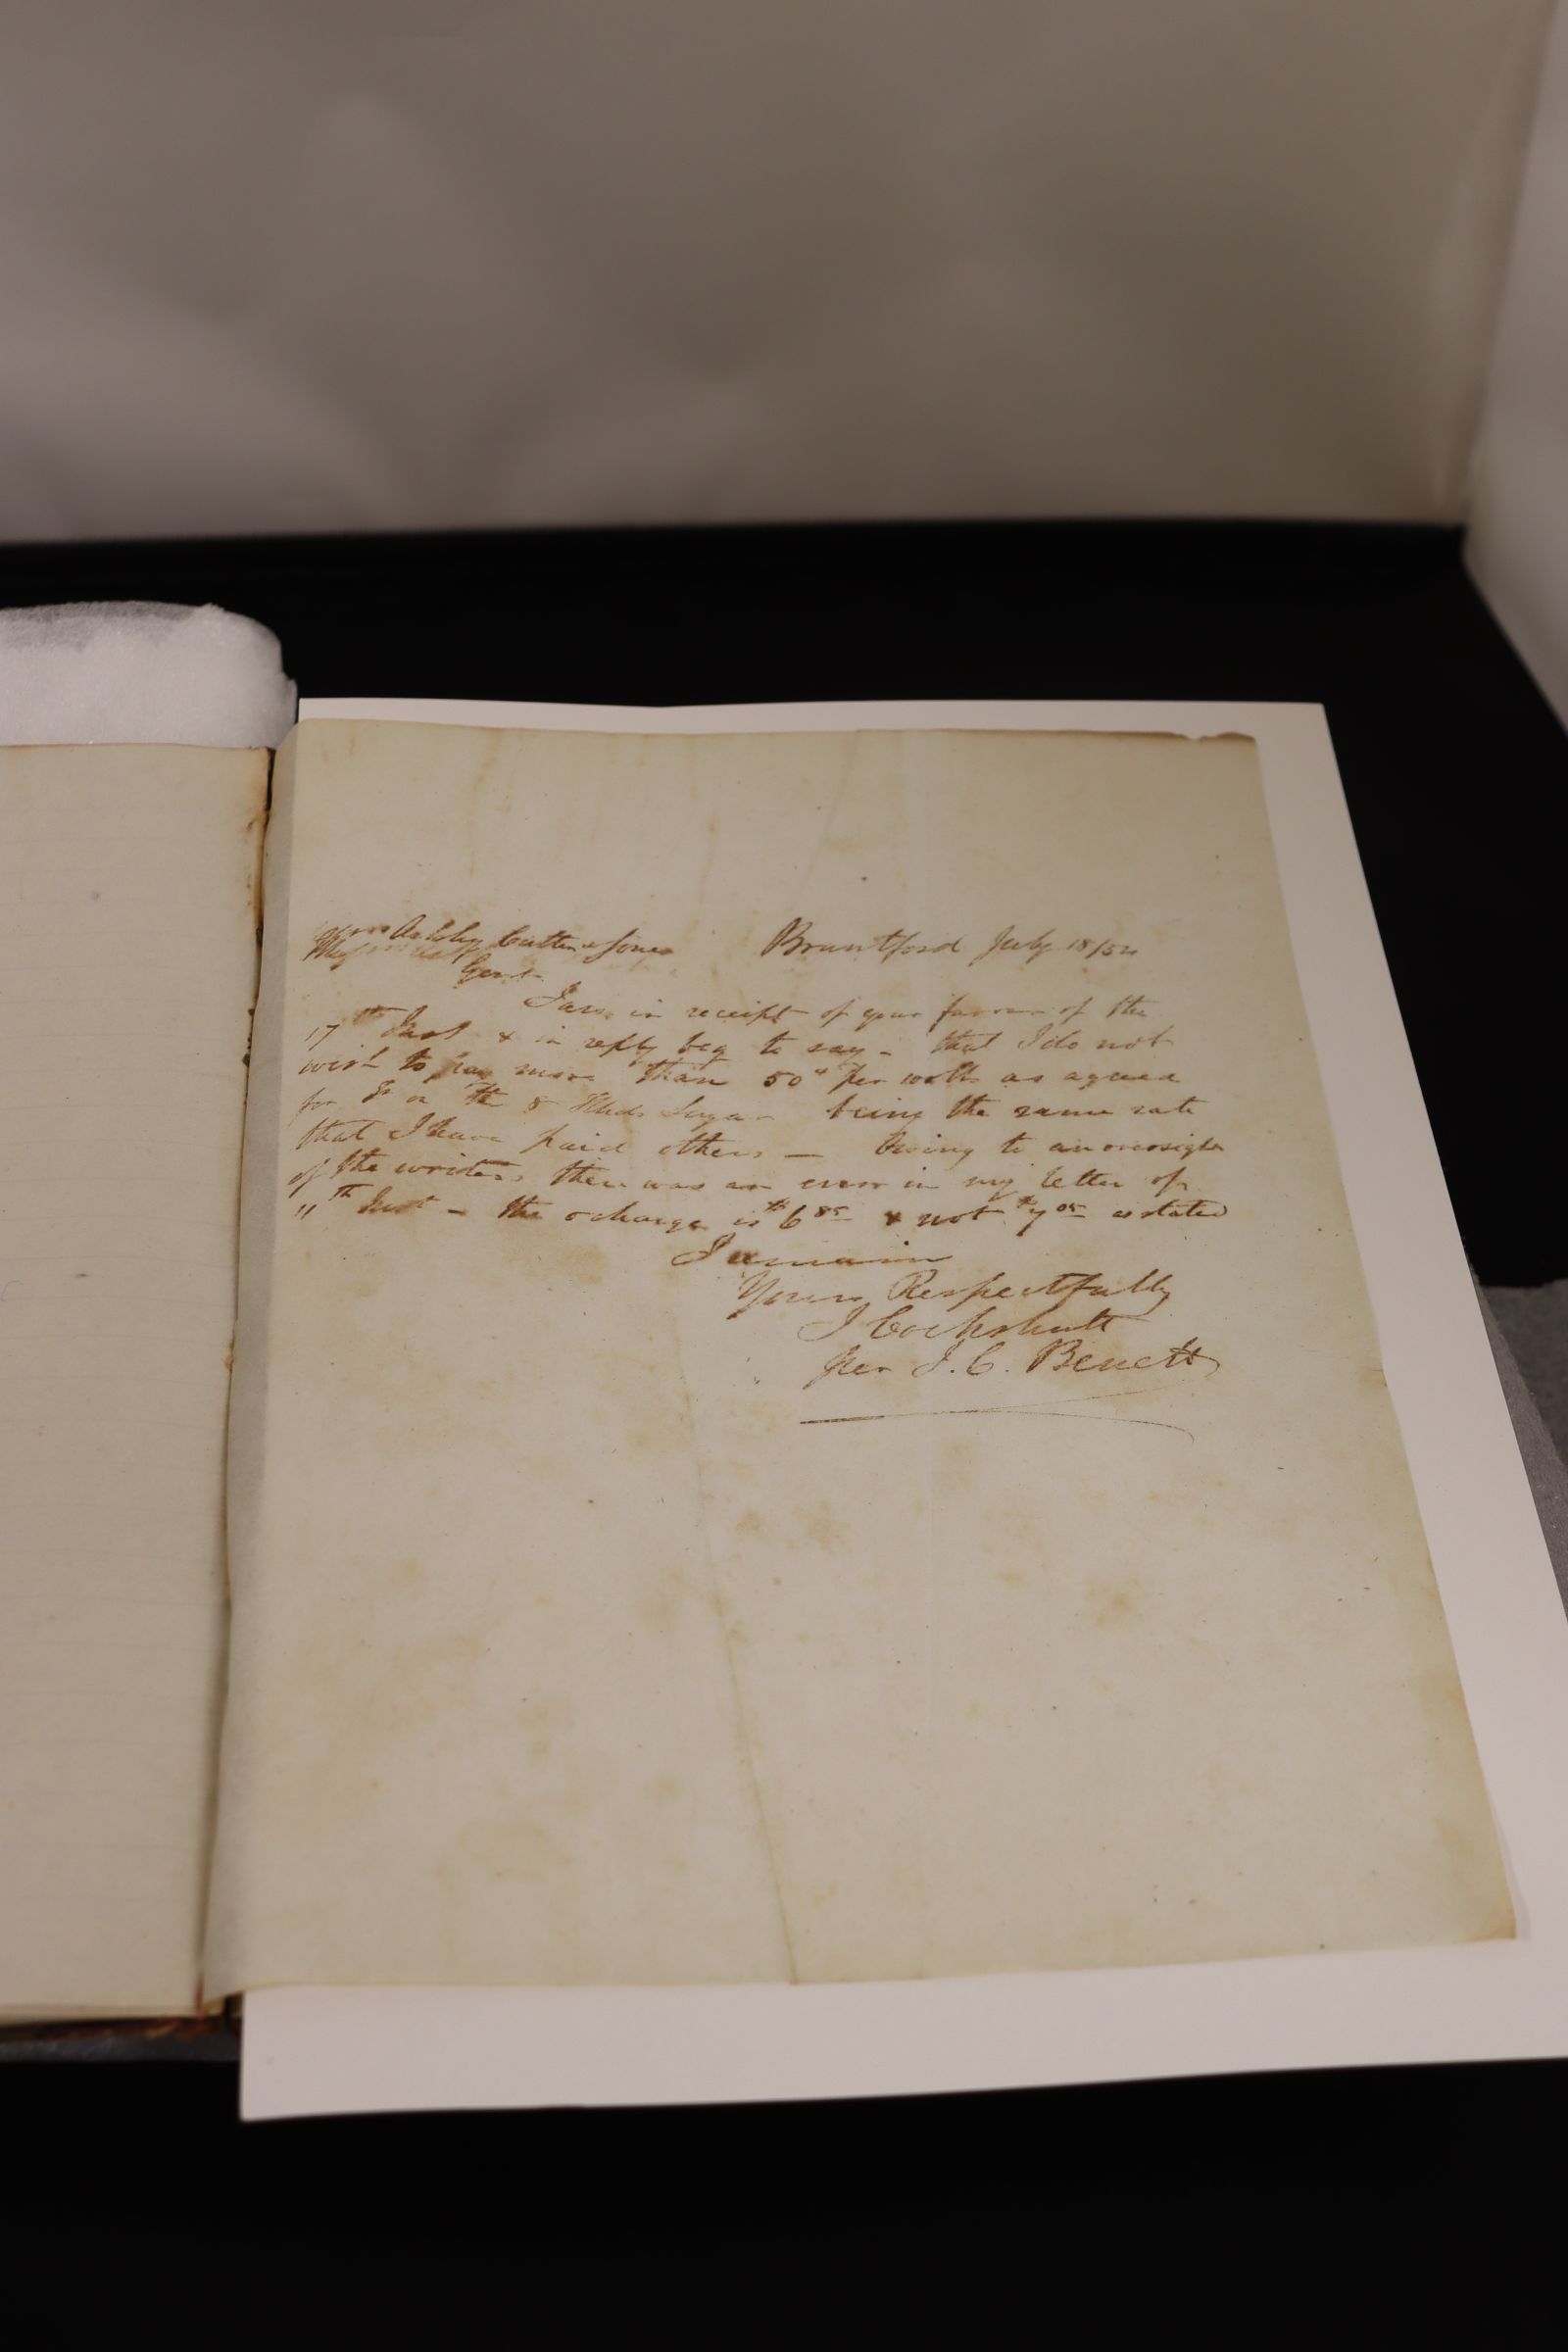 Ashley Cutten & Jones Brantford July 18/54
Gent
I am in receipt of your favour of the
17th Inst & in reply beg to say - that I do not
wish to pay more than 50" per as agreed
for the 8 Hhds Sugar being the same rate
that I have paid others — Owing to an oversight
of the writers there was an error in my letter of
11th Inst - the charge is $6 85 & not $7 05 as stated
I remain
Yours Respectfully
I Cockshutt
per J. C. Benett